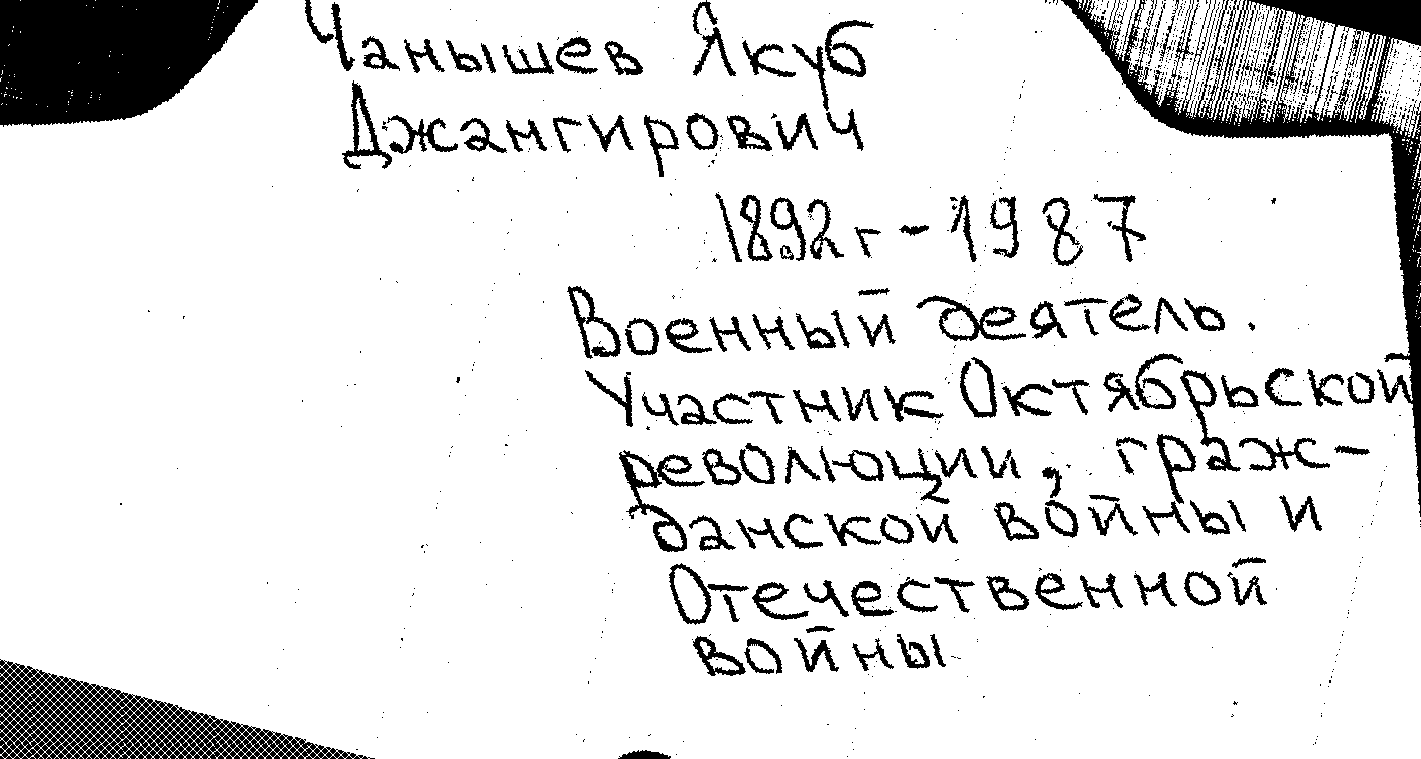 Чанышев Якуб
Джангирович
1892г - 1987
Военный деятель.
Участник Октябрьской
революции, граж-
данской войны и
Отечественной
войны